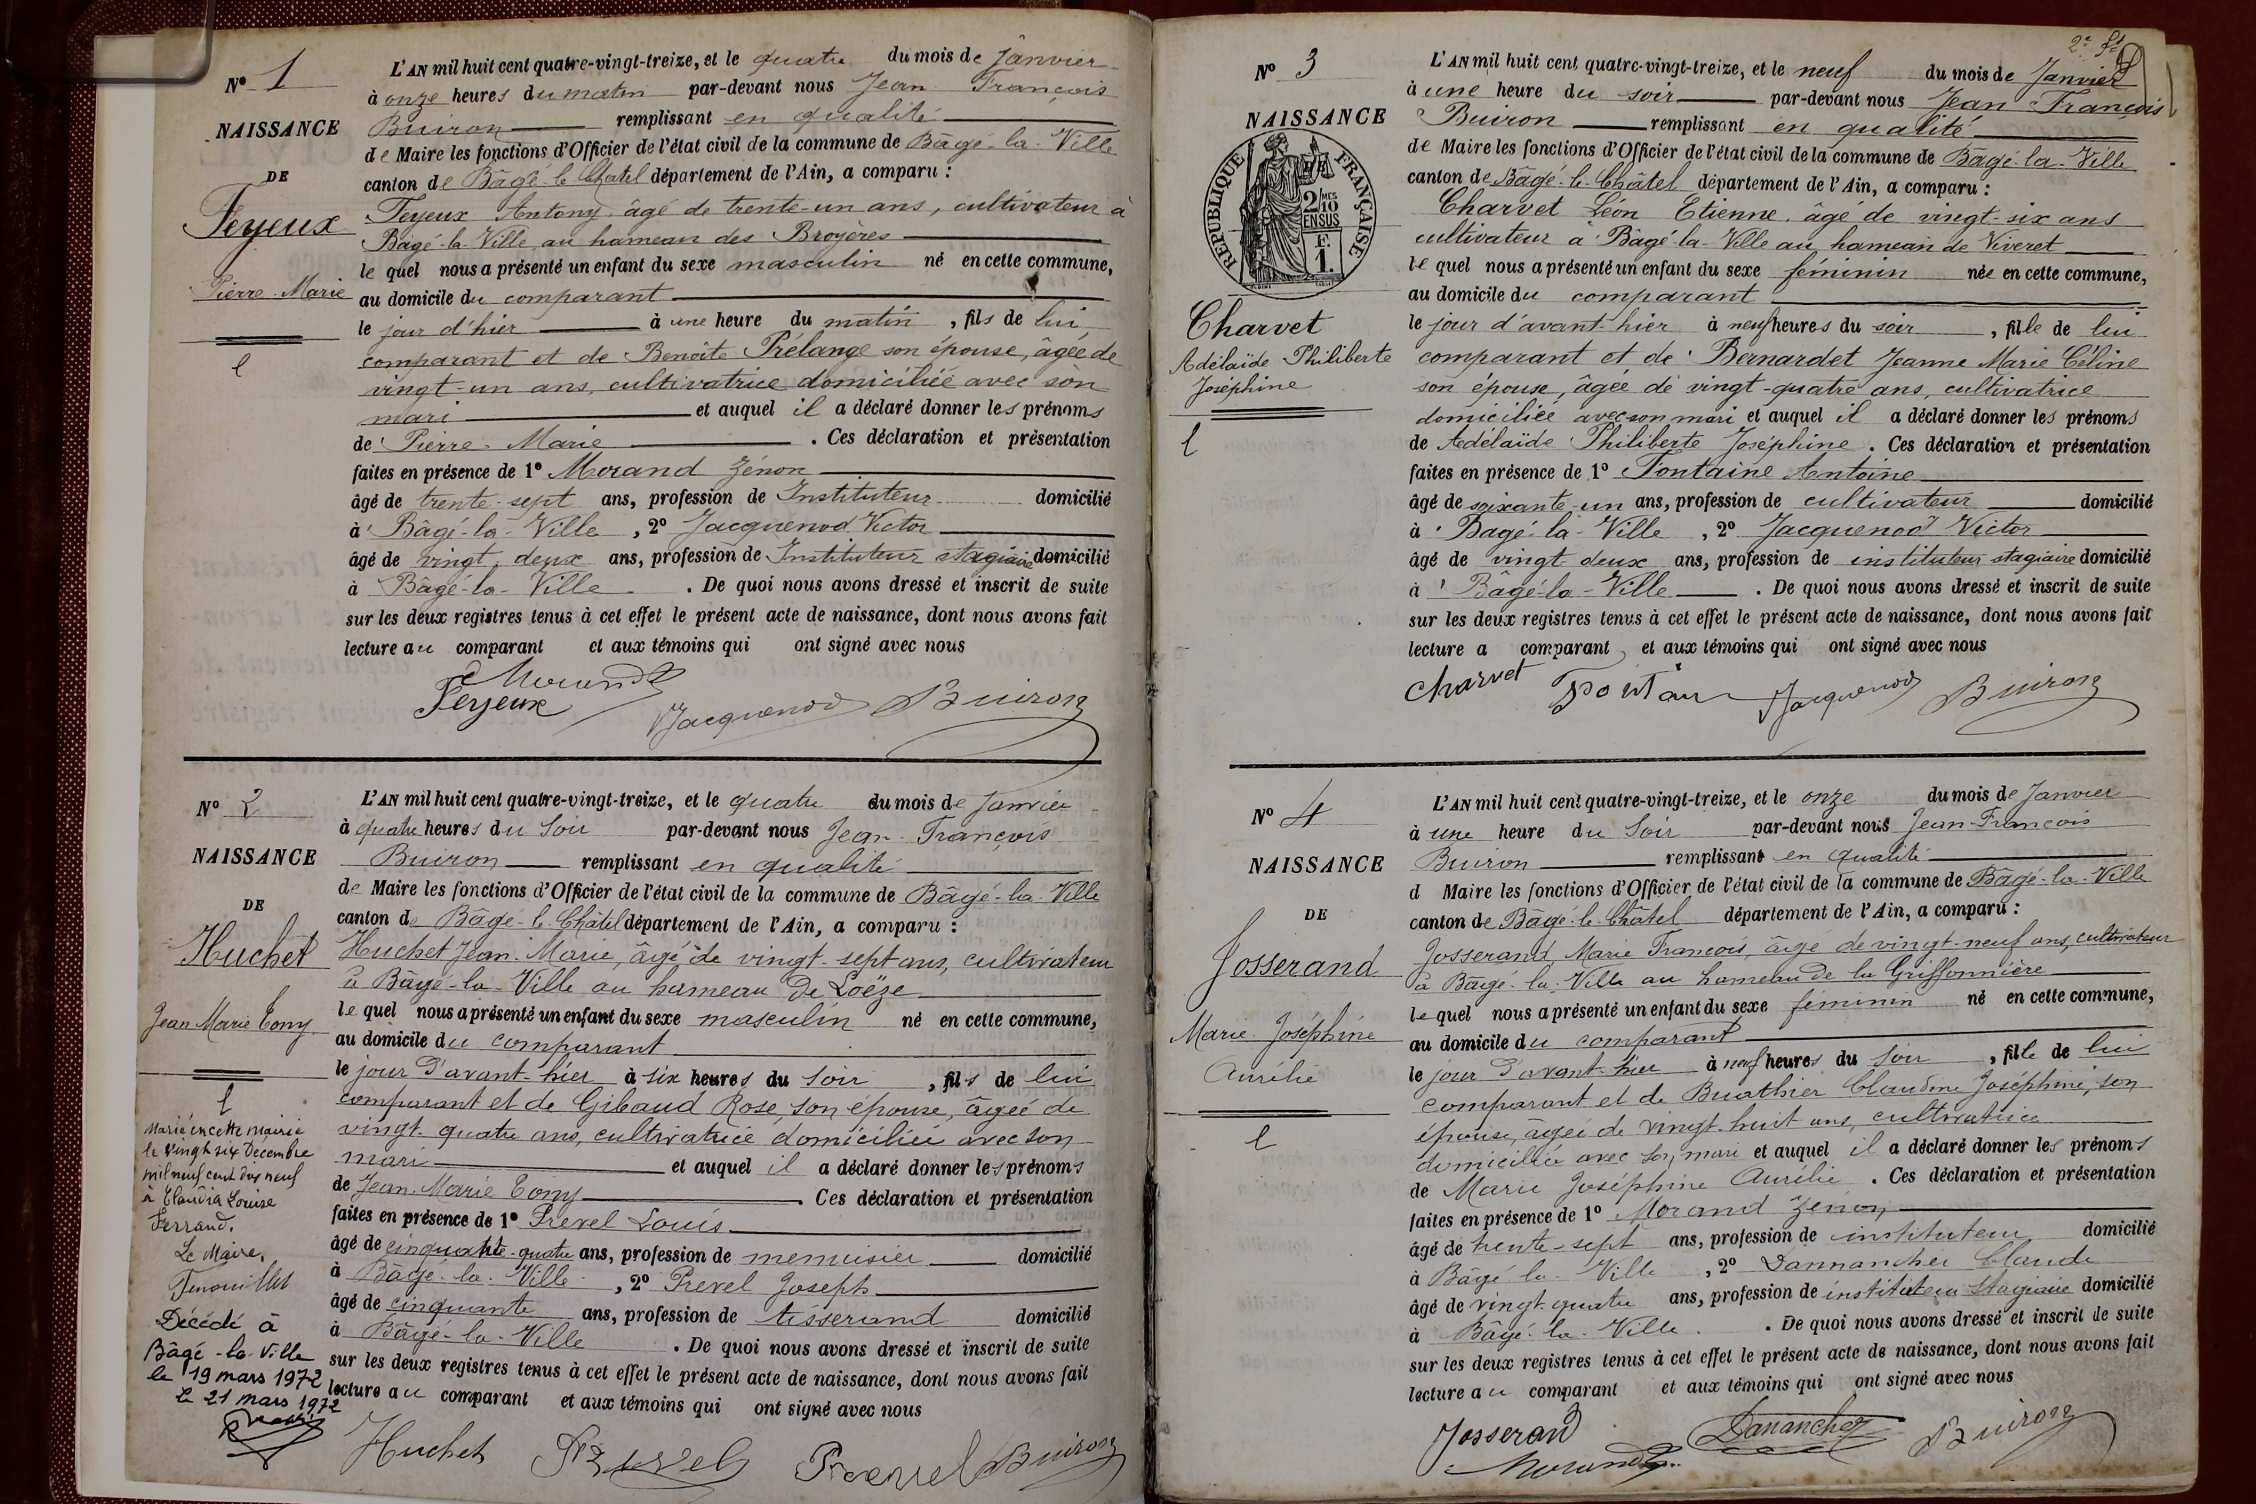 Nº 1
NAISSANCE
DE
Feyeux
Pierre-Marie
L'AN mil huit cent quatre-vingt-treize, et le quatre du mois de Janvier
à onze heures du matin par-devant nous Jean François
Buiron remplissant en qualité
de Maire les fonctions d'Officier de l'état civil de la commune de Bâgé-la-Ville
canton de Bâgé-le-Châtel département de l'Ain, a comparu :
Feyeux Antony âgé de trente-un ans, cultivateur à
Bâgé-la-Ville au hameau des Broyères
le quel nous a présenté un enfant du sexe masculin né en cette commune,
au domicile du comparant
le jour d'hier à une heure du matin, fils de lui
comparant et de Benoîte Prélange son épouse, âgée de
vingt-un ans, cultivatrice domiciliée avec son
mari et auquel il a déclaré donner les prénoms
de Pierre-Marie. Ces déclaration et présentation
faites en présence de 1º Morand Zénon
âgé de trente-sept ans, profession de Instituteur domicilié
à Bâgé-la-Ville, 2º Jacquenod Victor
âgé de vingt deux ans, profession de Instituteur stagiaire domicilié
à Bâgé-la-Ville. De quoi nous avons dressé et inscrit de suite
sur les deux registres tenus à cet effet le présent acte de naissance, dont nous avons fait
lecture au comparant et aux témoins qui ont signé avec nous
Morand
Feyeux Jacquenod Buiron
Nº 2
NAISSANCE
DE
Huchet
Jean Marie Tony
Marié en cette mairie
le vingt six Décembre
mil neuf cent dix neuf
à Claudia Louise
Ferrand.
Le Maire,
Décédé à
Bâgé-la-Ville
le 19 mars 1972
le 21 mars 1972
L'AN mil huit cent quatre-vingt-treize, et le quatre du mois de Janvier
à quatre heures du soir par-devant nous Jean-François
Buiron remplissant en qualité
de Maire les fonctions d'Officier de l'état civil de la commune de Bâgé-la-Ville
canton de Bâgé-le-Châtel département de l'Ain, a comparu :
Huchet Jean-Marie, âgé de vingt-sept ans, cultivateur
à Bâgé-la-Ville au hameau de Loëze
le quel nous a présenté un enfant du sexe masculin né en cette commune,
au domicile du comparant
le jour d'avant-hier à six heures du soir, fils de lui
comparant et de Gibaud Rose, son épouse, âgée de
vingt-quatre ans, cultivatrice domiciliée avec son
mari et auquel il a déclaré donner les prénoms
de Jean-Marie Tony. Ces déclaration et présentation
faites en présence de 1º Prevel Louis
âgé de cinquante-quatre ans, profession de menuisier domicilié
à Bâgé-la-Ville, 2º Prevel Joseph
âgé de cinquante ans, profession de tisserand domicilié
à Bâgé-la-Ville. De quoi nous avons dressé et inscrit de suite
sur les deux registres tenus à cet effet le présent acte de naissance, dont nous avons fait
lecture au comparant et aux témoins qui ont signé avec nous
Huchet Prevel Prevel Buiron
Nº 3
NAISSANCE
RÉPUBLIQUE FRANÇAISE
2/10
MES
EN SUS
F.
1.
Charvet
Adélaïde Philiberte
Joséphine
L'AN mil huit cent quatre-vingt-treize, et le neuf du mois de Janvier
à une heure du soir par-devant nous Jean-François
Buiron remplissant en qualité
de Maire les fonctions d'Officier de l'état civil de la commune de Bâgé-la-Ville
canton de Bâgé-le-Châtel département de l'Ain, a comparu :
Charvet Léon Etienne, âgé de vingt-six ans
cultivateur à Bâgé-la-Ville au hameau de Viveret
le quel nous a présenté un enfant du sexe féminin née en cette commune,
au domicile du comparant
le jour d'avant-hier à neuf heures du soir, fille de lui
comparant et de Bernardet Jeanne Marie Céline
son épouse, âgée de vingt-quatre ans, cultivatrice
domiciliée avec son mari et auquel il a déclaré donner les prénoms
de Adélaïde Philiberte Joséphine. Ces déclaration et présentation
faites en présence de 1º Fontaine Antoine
âgé de soixante-un ans, profession de cultivateur domicilié
à Bagé-la-Ville, 2º Jacquenod Victor
âgé de vingt deux ans, profession de instituteur stagiaire domicilié
à Bâgé-la-Ville. De quoi nous avons dressé et inscrit de suite
sur les deux registres tenus à cet effet le présent acte de naissance, dont nous avons fait
lecture a comparant, et aux témoins qui ont signé avec nous
Charvet Jacquenod Buiron
Nº 4
NAISSANCE
DE
Josserand
Marie Joséphine
Aurélie
L'AN mil huit cent quatre-vingt-treize, et le onze du mois de Janvier
à une heure du soir par-devant nous Jean-François
Buiron remplissant en qualité
d Maire les fonctions d'Officier de l'état civil de la commune de Bâgé-la-Ville
canton de Bâgé-le-Châtel département de l'Ain, a comparu :
Josserand Marie François, âgé de vingt-neuf ans, cultivateur
à Bâgé-la-Ville au hameau de la Griffonnière
le quel nous a présenté un enfant du sexe féminin né en cette commune,
au domicile du comparant
le jour d'avant-hier à neuf heures du soir, fille de lui
comparant et de Buathier Claudine Joséphine, son
épouse, âgée de vingt-huit ans, cultivatrice
domiciliée avec son mari et auquel il a déclaré donner les prénoms
de Marie Joséphine Aurélie. Ces déclaration et présentation
faites en présence de 1º Morand Zénon
âgé de trente-sept ans, profession de instituteur domicilié
à Bâgé-la-Ville, 2º Dannancher Claude
âgé de vingt-quatre ans, profession de instituteur stagiaire domicilié
à Bâgé-la-Ville. De quoi nous avons dressé et inscrit de suite
sur les deux registres tenus à cet effet le présent acte de naissance, dont nous avons fait
lecture au comparant et aux témoins qui ont signé avec nous
Josserand Danancher Buiron
Morand